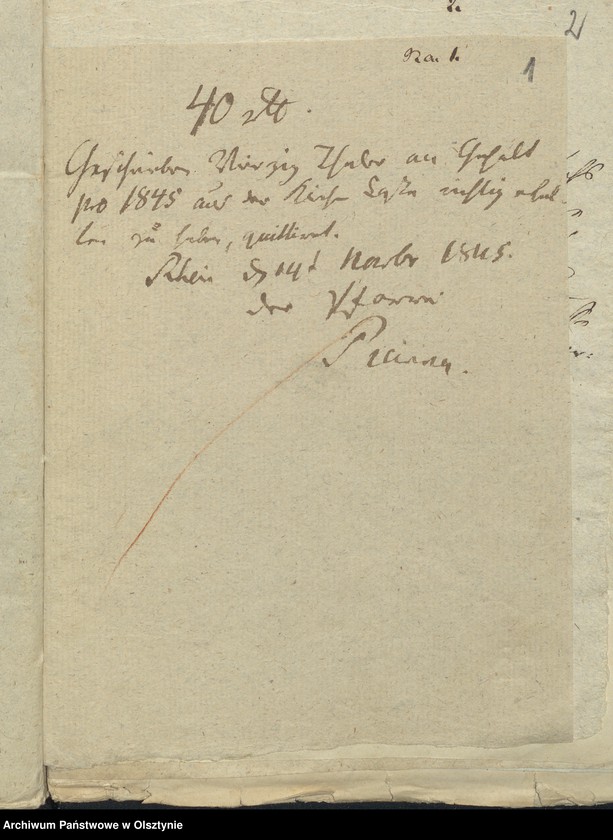 2
1
40 rtl.
Geschrieben Vierzig Thaler an Gehalt
pro 1845 aus der Kirchen Casse richtig erhal-
ten zu haben, quittirt.
Rhein d 14t Novbr 1845.
der Pfarrer
Archiwum Państwowe w Olsztynie